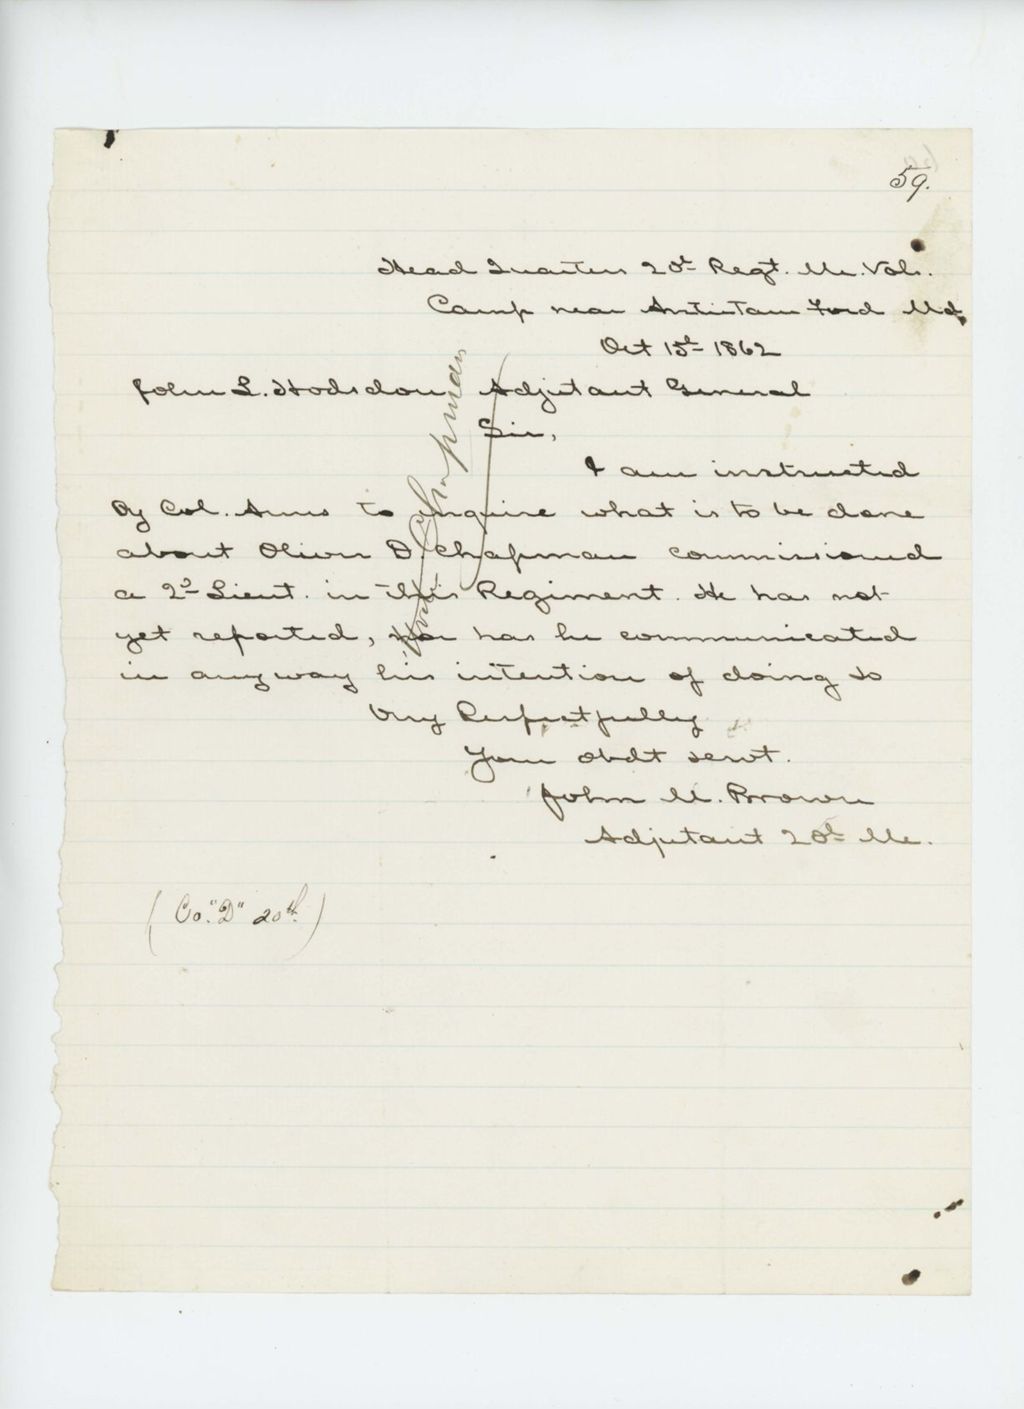 59.
Head Quarters 20th Regt. Me. Vols.
Camp near Antietam Ford Md.
Oct 15th 1862
John L. Hodsdon, Adjutant General
Sir,
I am instructed
by Col. Ames to inquire what is to be done
about Oliver D. Chapman commissioned
a 2d Lieut. in this Regiment. He has not
yet reported, nor has he communicated
in anyway his intention of doing so
Very Respectfully
Your obdt servt.
John M. Brown
Adjutant 20th Me.
(Co. "D" 20th)
Chapman